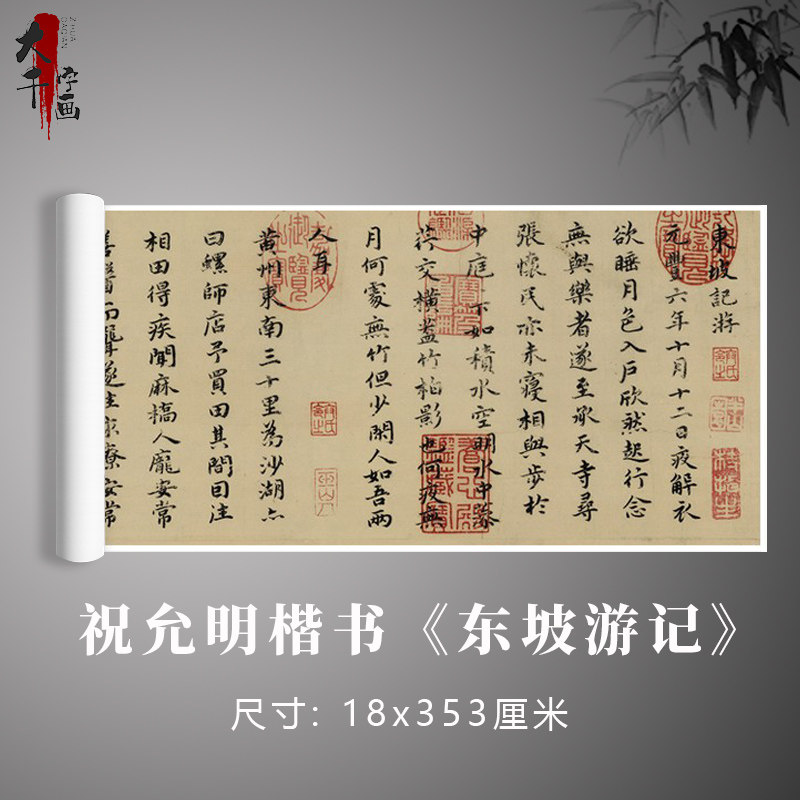 大千
字画
東坡記游
元豐六年十月十二日疲解衣
欲睡月色入戶欣然起行念
無與樂者遂至承天寺尋
張懷民亦未寢相與步於
中庭下如積水空明水中藻
荇交橫蓋竹柏影也何疲無
月何處無竹但少閑人如吾兩
人耳
黃州東南三十里為沙湖亦
曰螺師店予買田其間因往
相田得疾聞麻橋人龐安常
善醫而聾遂往求療安常
祝允明楷书《东坡游记》
尺寸: 18x353厘米